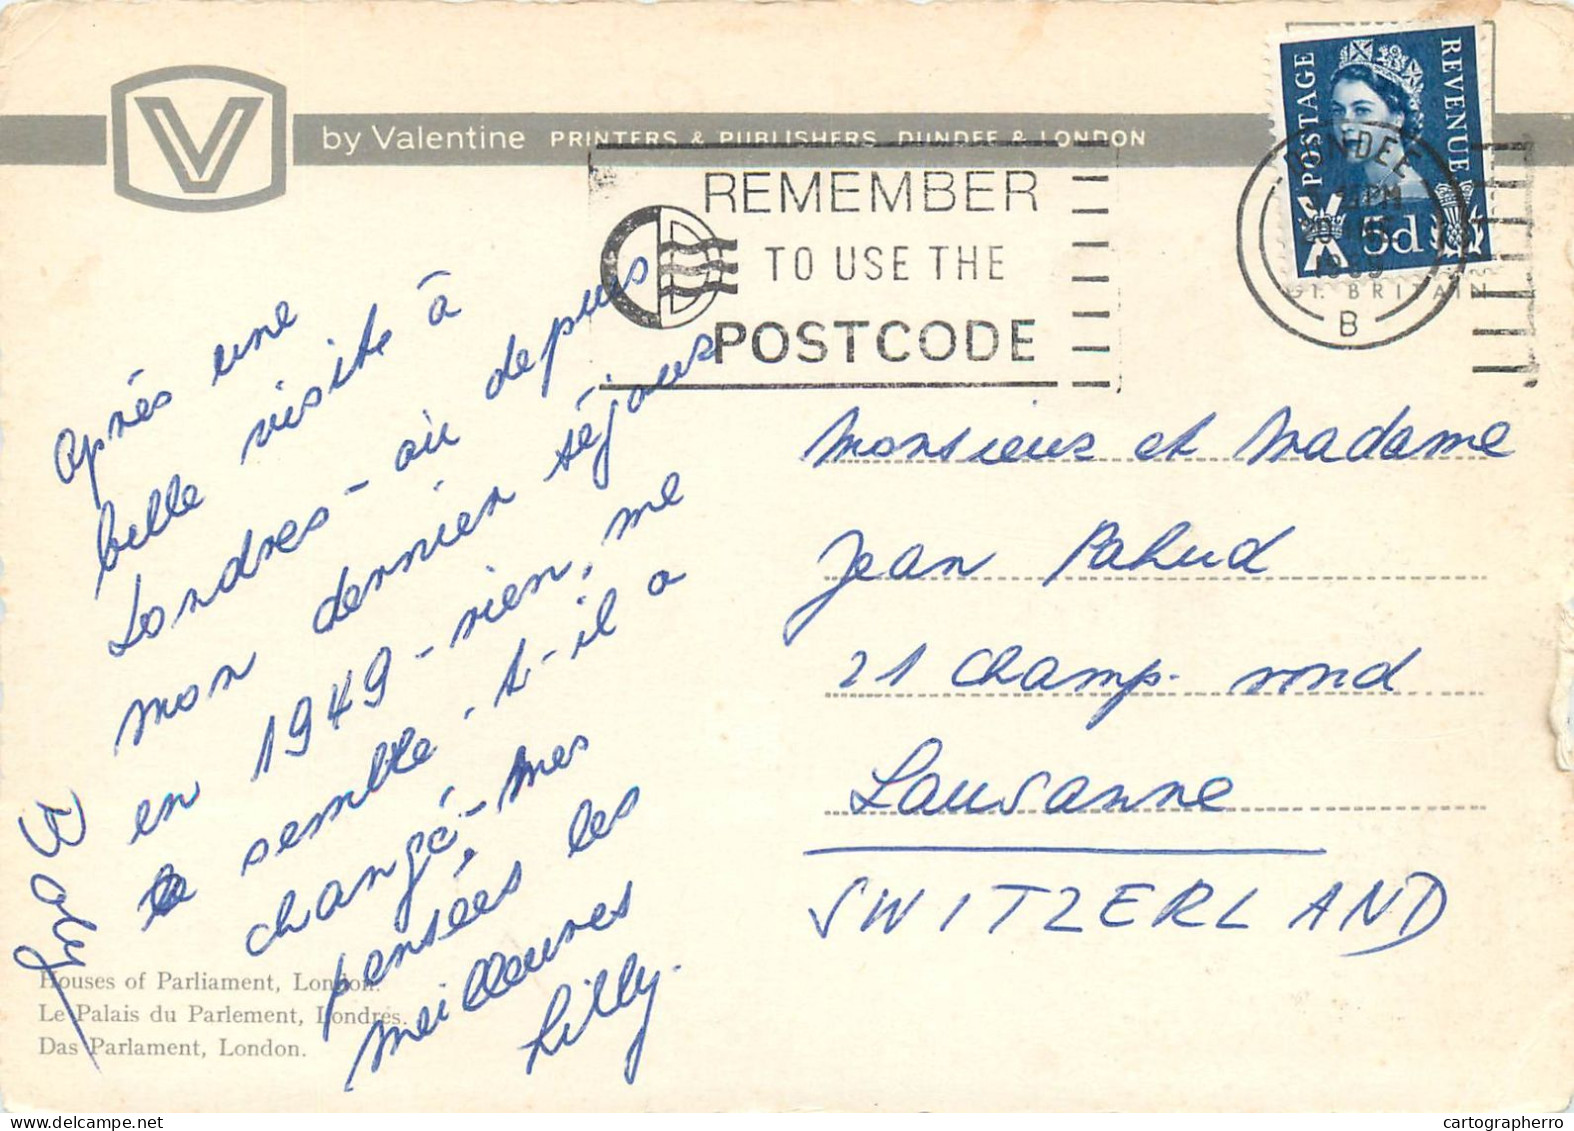 by Valentine PRINTERS & PUBLISHERS, DUNDEE & LONDON
POSTAGE
REVENUE
5d
DUNDEE
PM
1969
B
GT. BRITAIN
REMEMBER
TO USE THE
POSTCODE
après une
belle visite à
Londres - où depuis
mon dernier séjour
en 1949 - rien, me
semble-t-il a
changé - mes
pensées les
meilleures
Lilly.
Monsieur et Madame
Jean Pahud
21 Champ-rond
Lausanne
SWITZERLAND
Houses of Parliament, London.
Le Palais du Parlement, Londres.
Das Parlament, London.
cartographerro